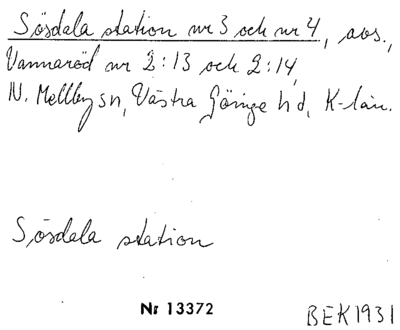 Sösdala station nr 3 och nr 4, avs.,
Vannaröd nr 2:13 och 2:14,
N. Mellby sn, Västra Göinge hd, K-län.
Sösdala station
Nr 13372
BEK1931